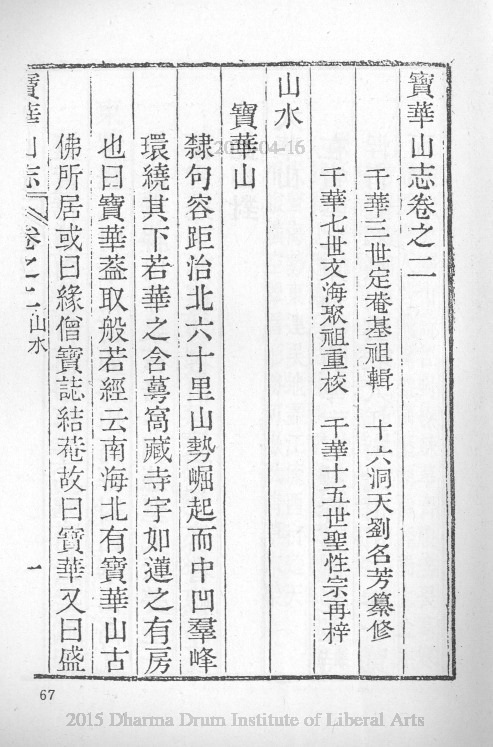 寶華山志卷之二
千華三世定菴基祖輯 十六洞天劉名芳纂修
千華七世文海聚祖重校 千華十五世聖性宗再梓
山水
寶華山
隸句容距治北六十里山勢崛起而中凹羣峰
環繞其下若華之含蕚窩藏寺宇如蓮之有房
也曰寶華葢取般若經云南海北有寶華山古
佛所居或曰緣僧寶誌結菴故曰寶華又曰盛
寶華山志 卷之二 山水 一
67
2015 Dharma Drum Institute of Liberal Arts